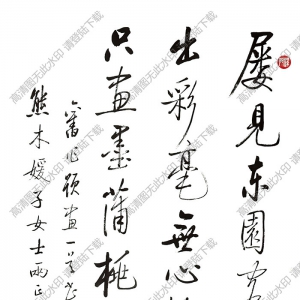 屡見东園
出彩毫無心
只画墨蒲桃
旧作题画一首
熊木媛子女士雨正
高清图无此水印 请登陆下载